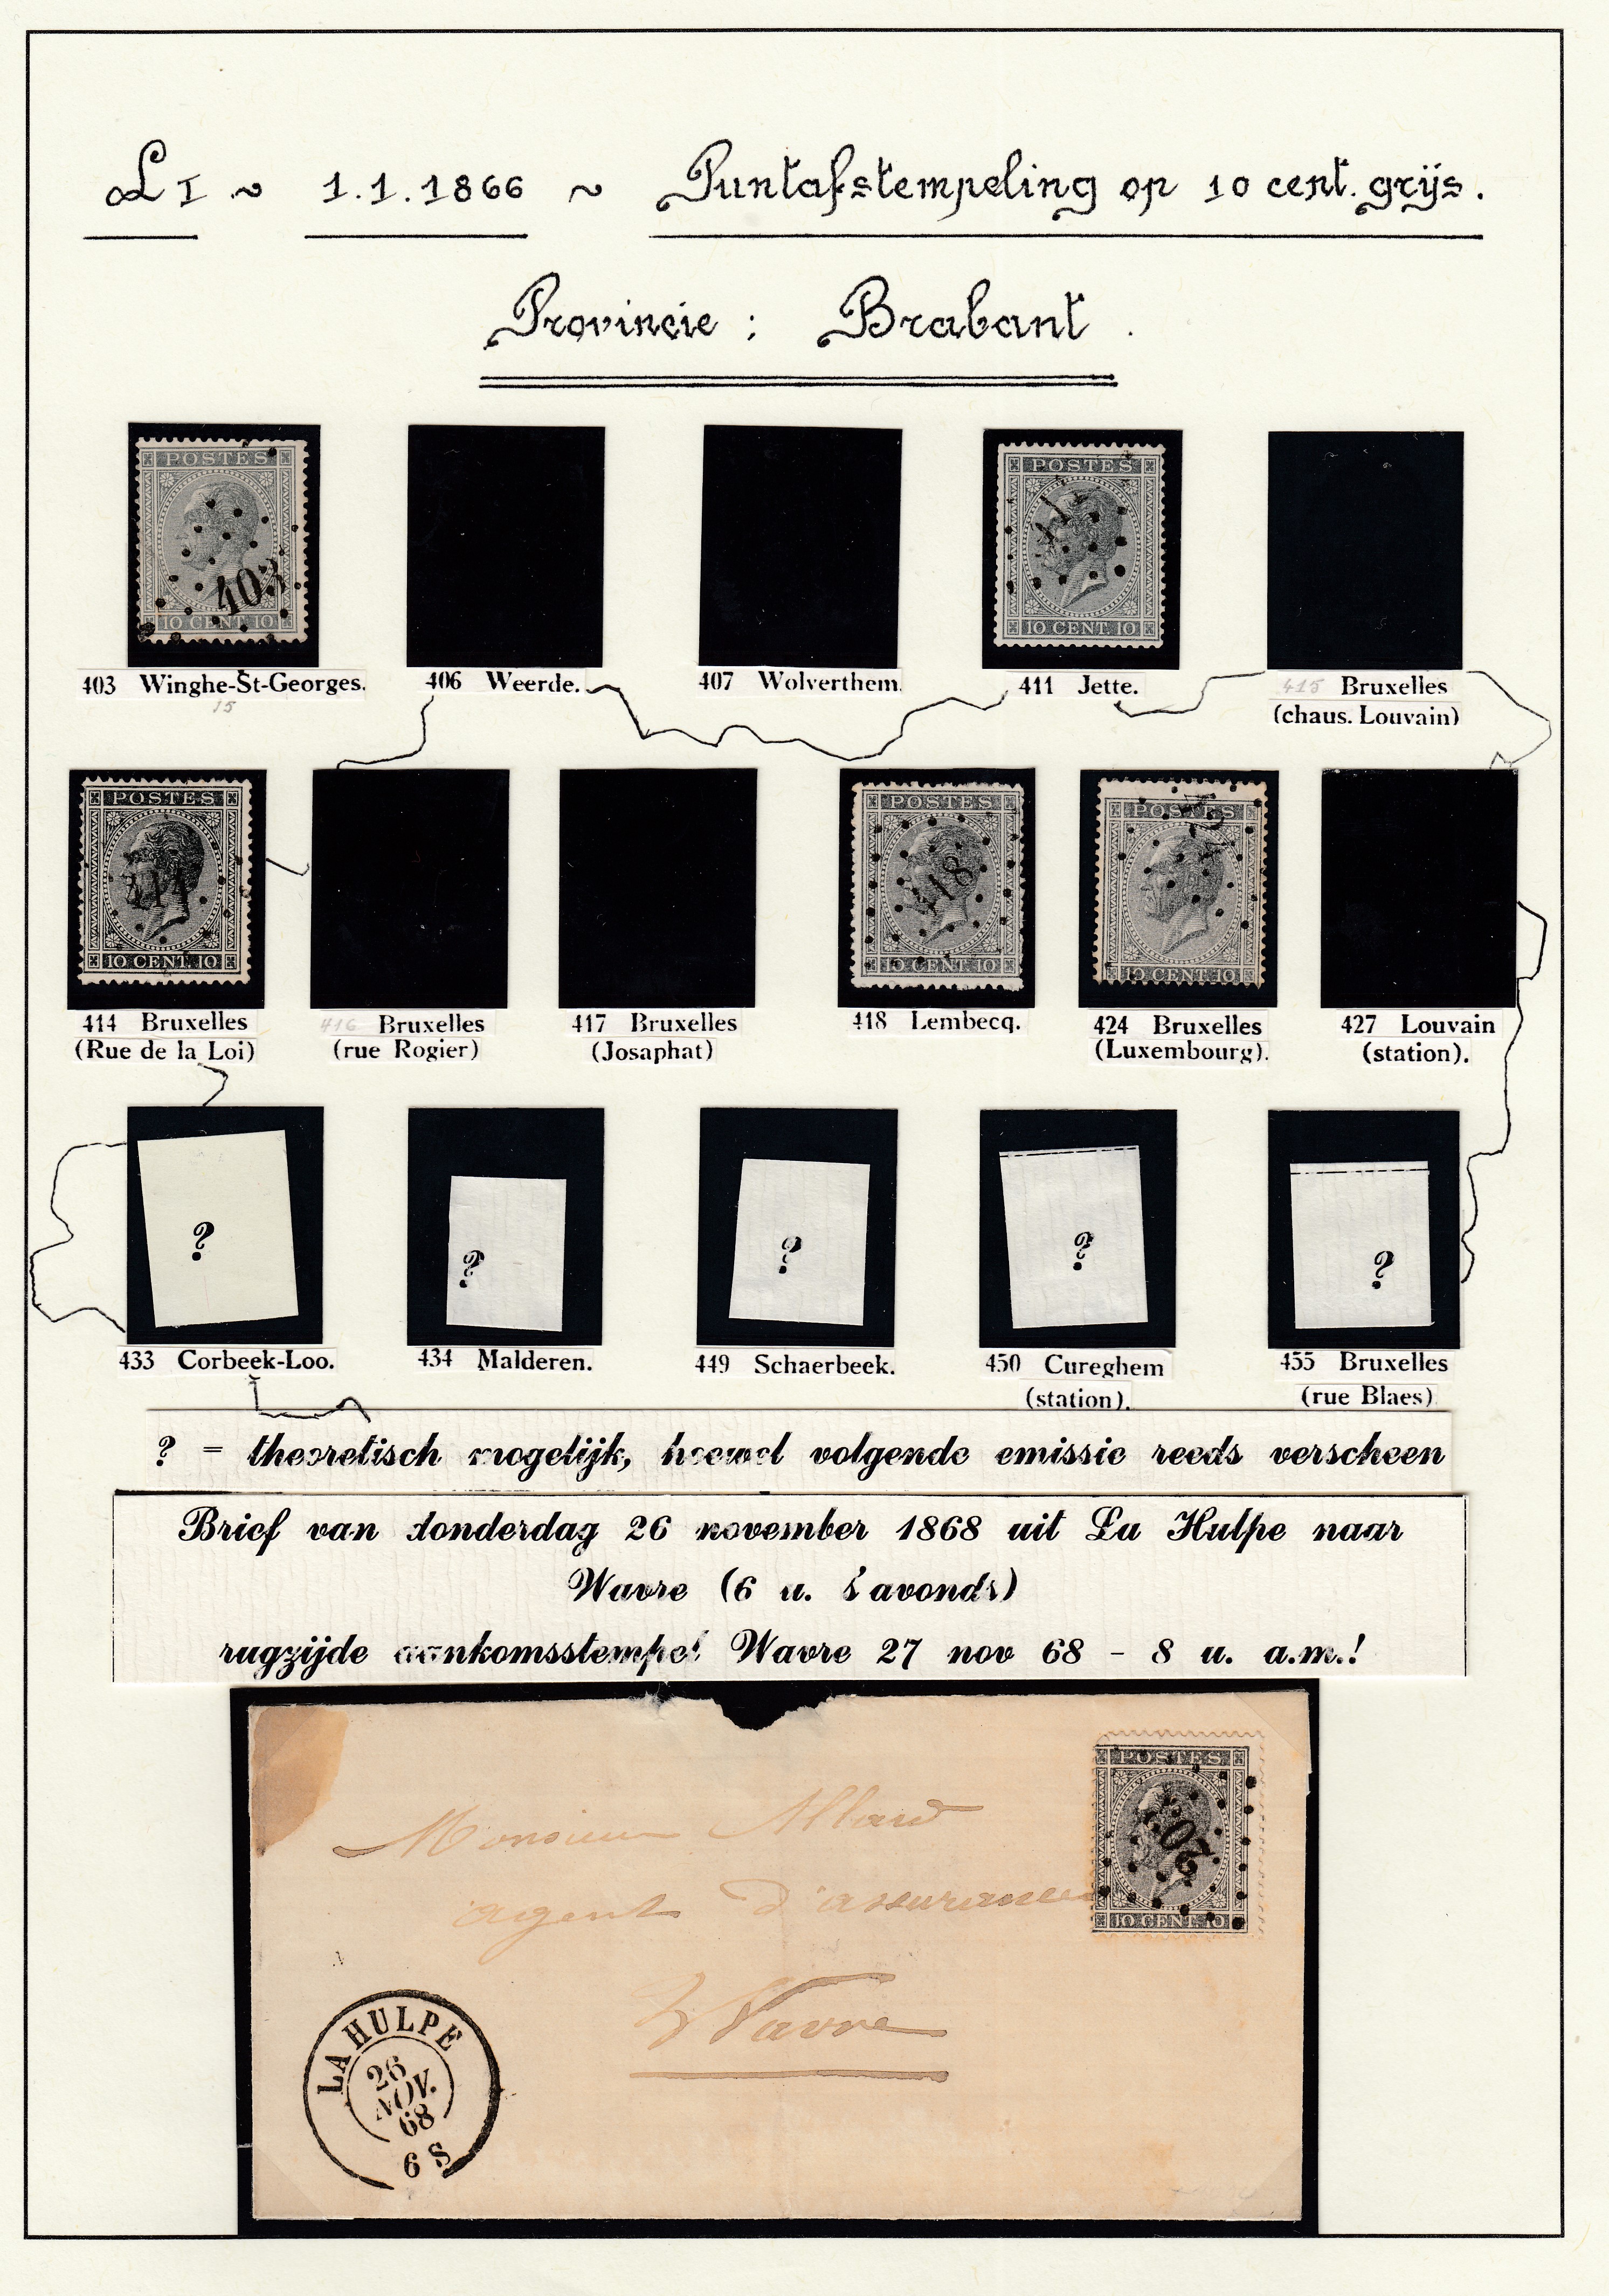 L I ~ 1.1.1866 ~ Puntafstempeling op 10 cent. grijs.
Provincie : Brabant.
POSTES
403
10 CENT. 10
POSTES
10 CENT. 10
403 Winghe-St-Georges.
15
406 Weerde.
407 Wolverthem.
411 Jette.
415 Bruxelles
(chaus. Louvain)
POSTES
414
10 CENT. 10
POSTES
418
10 CENT. 10
POSTES
10 CENT. 10
414 Bruxelles
(Rue de la Loi)
416 Bruxelles
(rue Rogier)
417 Bruxelles
(Josaphat)
418 Lembecq.
424 Bruxelles
(Luxembourg).
427 Louvain
(station).
?
?
?
?
?
433 Corbeek-Loo.
434 Malderen.
449 Schaerbeek.
450 Cureghem
(station).
455 Bruxelles
(rue Blaes)
? = theoretisch mogelijk, hoewel volgende emissie reeds verscheen
Brief van donderdag 26 november 1868 uit La Hulpe naar
Wavre (6 u. s'avonds)
rugzijde aankomsstempel Wavre 27 nov 68 - 8 u. a.m.!
POSTES
10 CENT. 10
Monsieur Allard
agent d'assurances
Wavre
LA HULPE
26
NOV.
68
6 S